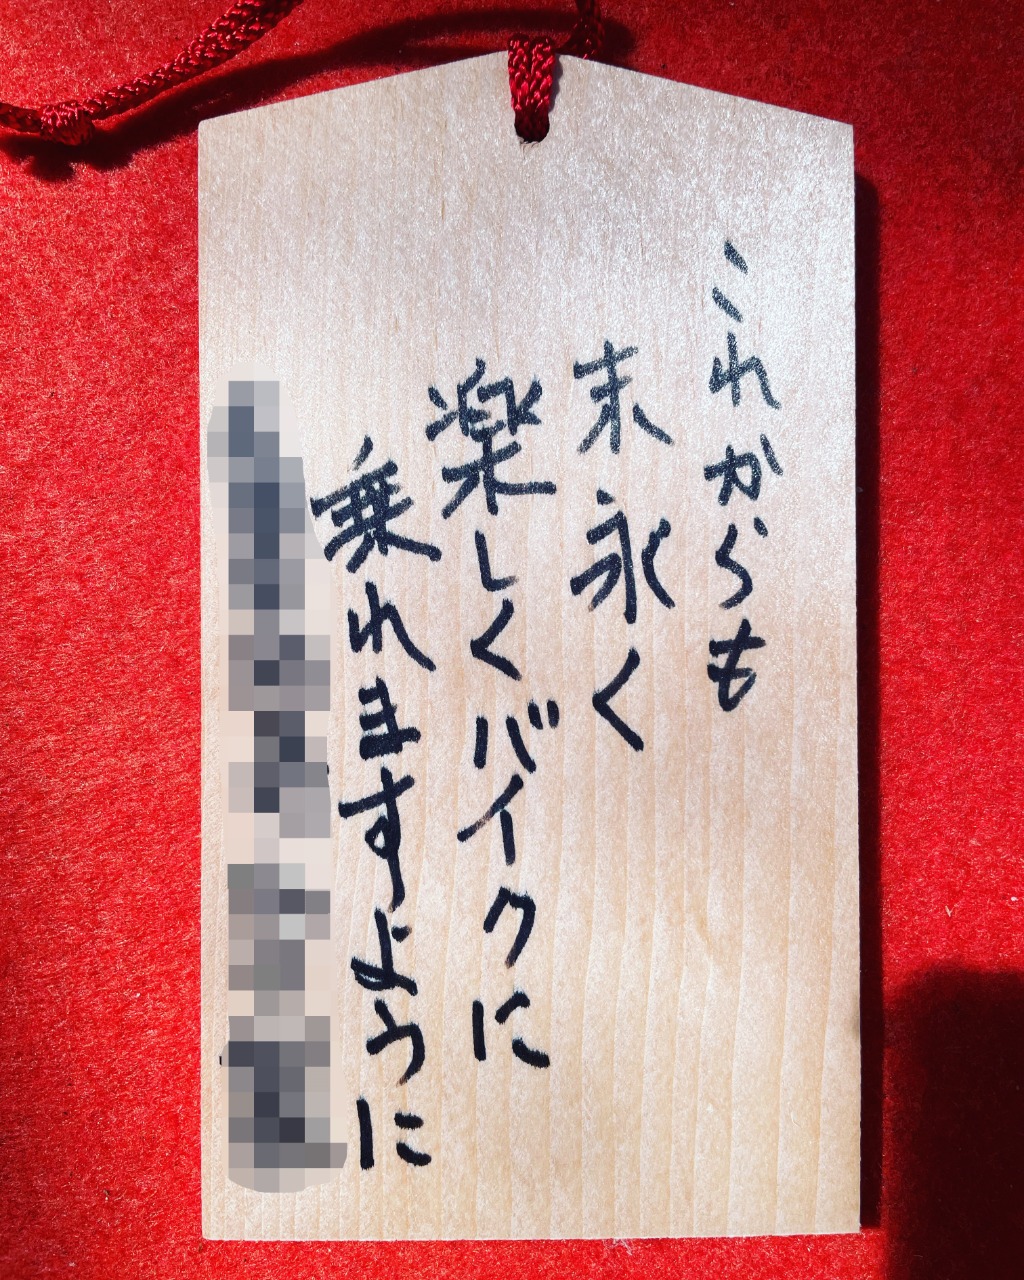 これからも
末永く
楽しくバイクに
乗れますように